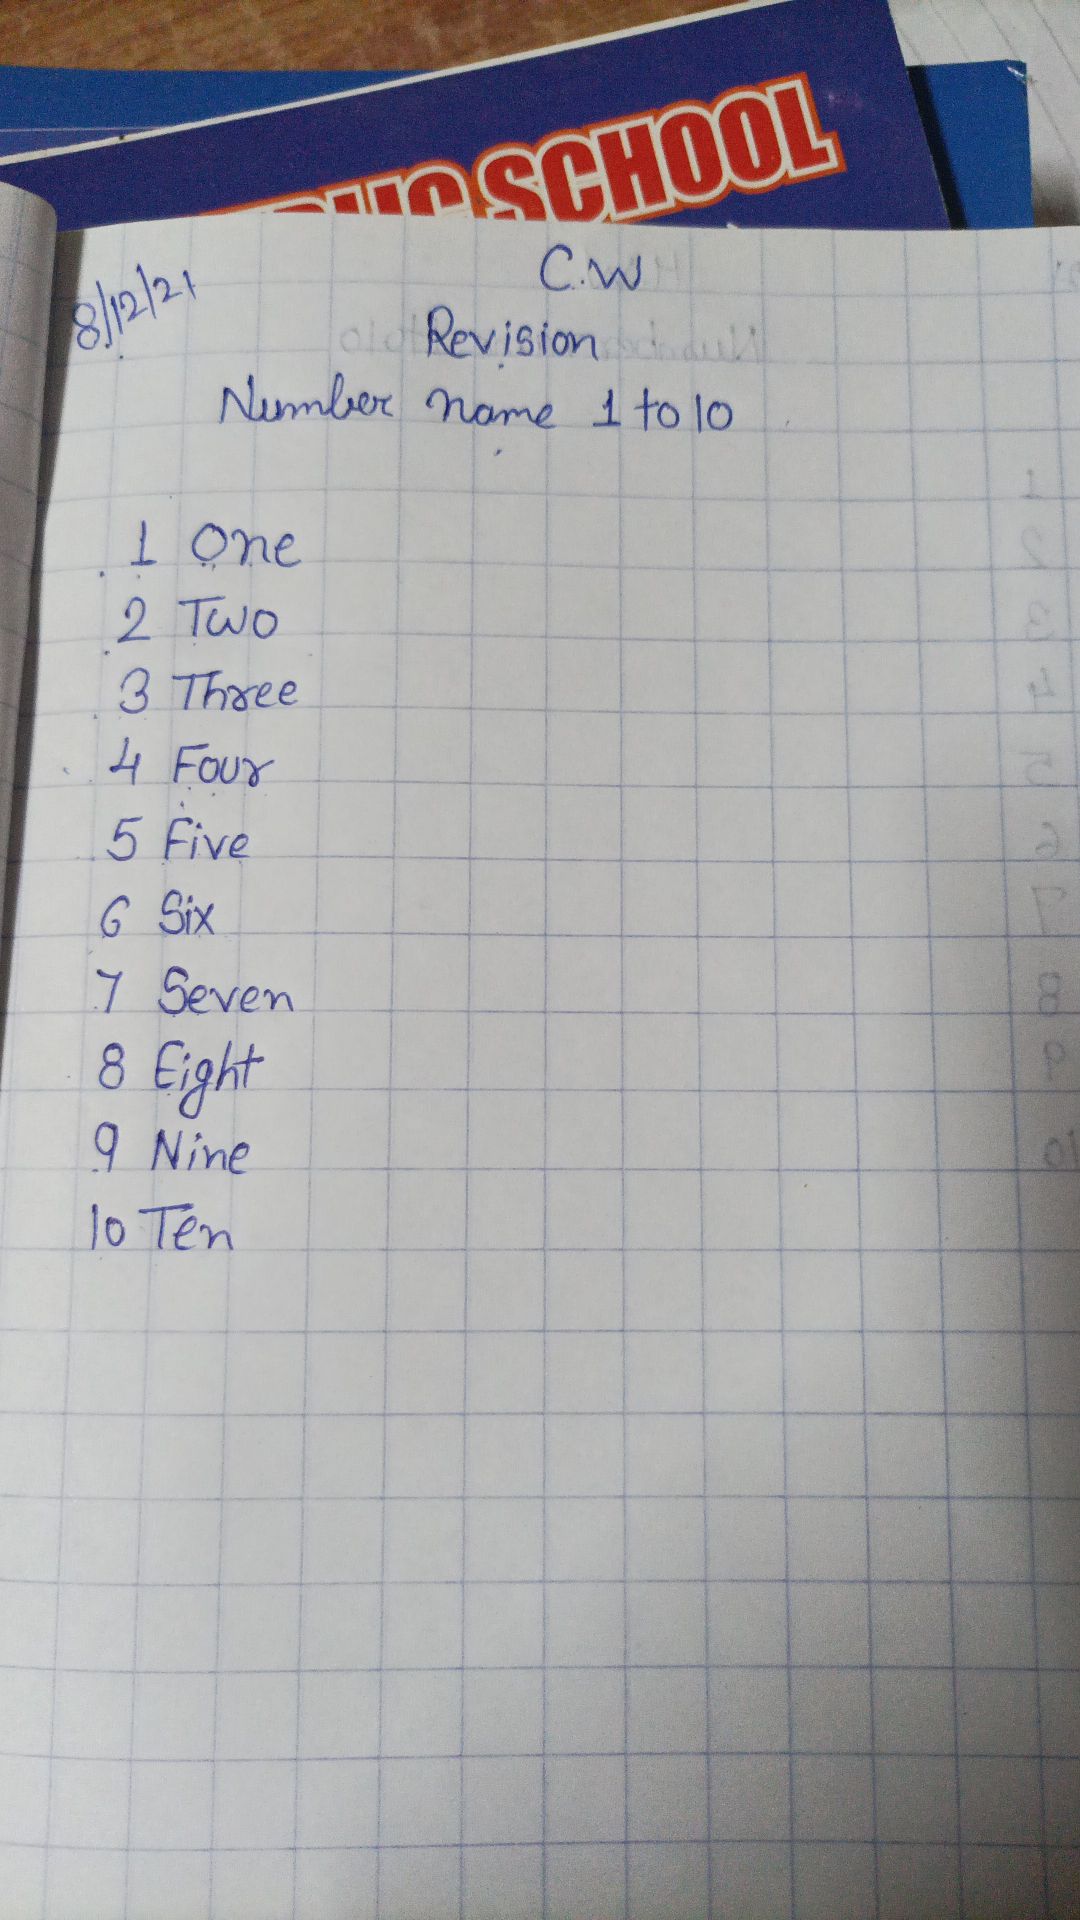 SCHOOL
C.W
8/12/21
Revision
Number name 1 to 10
1 One
2 Two
3 Three
4 Four
5 Five
6 Six
7 Seven
8 Eight
9 Nine
10 Ten